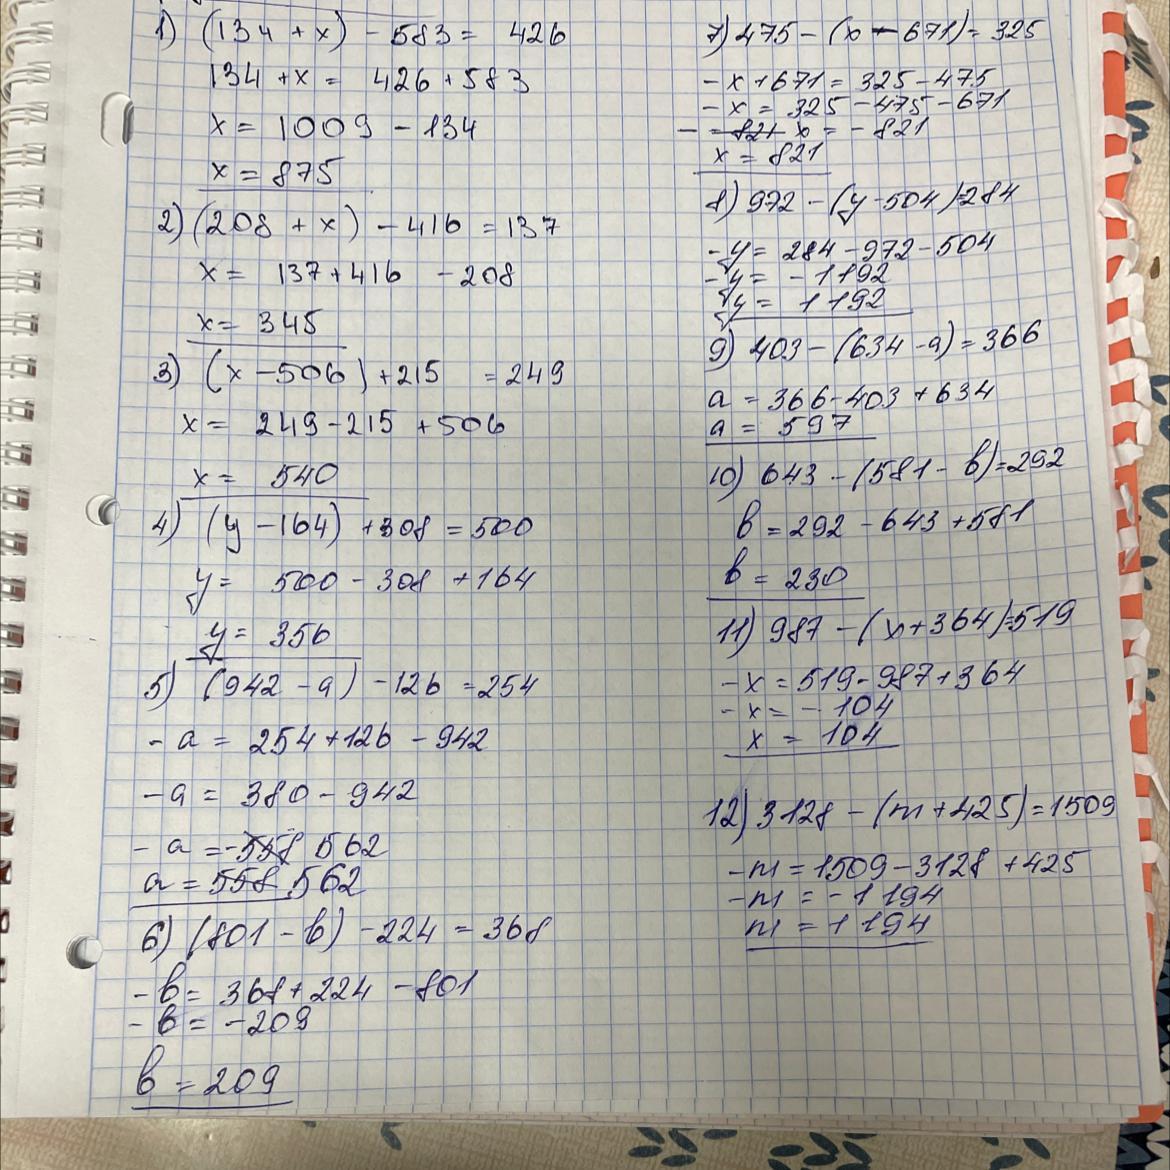 1) (134 + x) - 583 = 426
134 + x = 426 + 583
x = 1009 - 134
x = 875
2) (208 + x) - 416 = 137
x = 137 + 416 - 208
x = 345
3) (x - 506) + 215 = 249
x = 249 - 215 + 506
x = 540
4) (y - 164) + 308 = 500
y = 500 - 308 + 164
y = 356
5) (942 - a) - 126 = 254
- a = 254 + 126 - 942
- a = 380 - 942
- a = -558 562
a = 558 562
6) (801 - b) - 224 = 368
- b = 368 + 224 - 801
- b = -209
b = 209
7) 475 - (x - 671) = 325
- x + 671 = 325 - 475
- x = 325 - 475 - 671
- = 821 x = - 821
x = 821
8) 972 - (y - 504) = 284
- y = 284 - 972 - 504
- y = - 1192
y = 1192
9) 403 - (634 - a) = 366
a = 366 - 403 + 634
a = 597
10) 643 - (581 - b) = 292
b = 292 - 643 + 581
b = 230
11) 987 - (x + 364) = 519
- x = 519 - 987 + 364
- x = - 104
x = 104
12) 3128 - (m + 425) = 1509
- m = 1509 - 3128 + 425
- m = - 1194
m = 1194